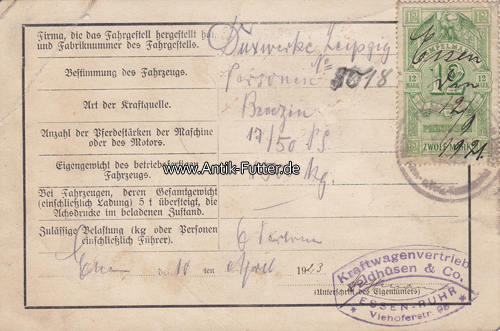 Firma, die das Fahrgestell hergestellt hat
und Fabriknummer des Fahrgestells.
Duxwerke Leipzig
No
Bestimmung des Fahrzeugs.
Personen
Art der Kraftquelle.
Benzin
Anzahl der Pferdestärken der Maschine
oder des Motors.
17/50 PS.
Eigengewicht des betriebsfertigen
Fahrzeugs.
kg.
Bei Fahrzeugen, deren Gesamtgewicht
(einschließlich Ladung) 5 t übersteigt, die
Achsdrucke im beladenen Zustand.
Zulässige Belastung (kg oder Personen
einschließlich Führer).
6 Personen
Essen den 10 ten April 1923
(Unterschrift des Eigentümers)
STEMPELMARKE
12
12 MARK
12 MARK
ZWÖLF MARK
Essen
Kraftwagenvertrieb
& Co.
ESSEN-RUHR
* Viehoferstr. 96 *
www.Antik-Futter.de